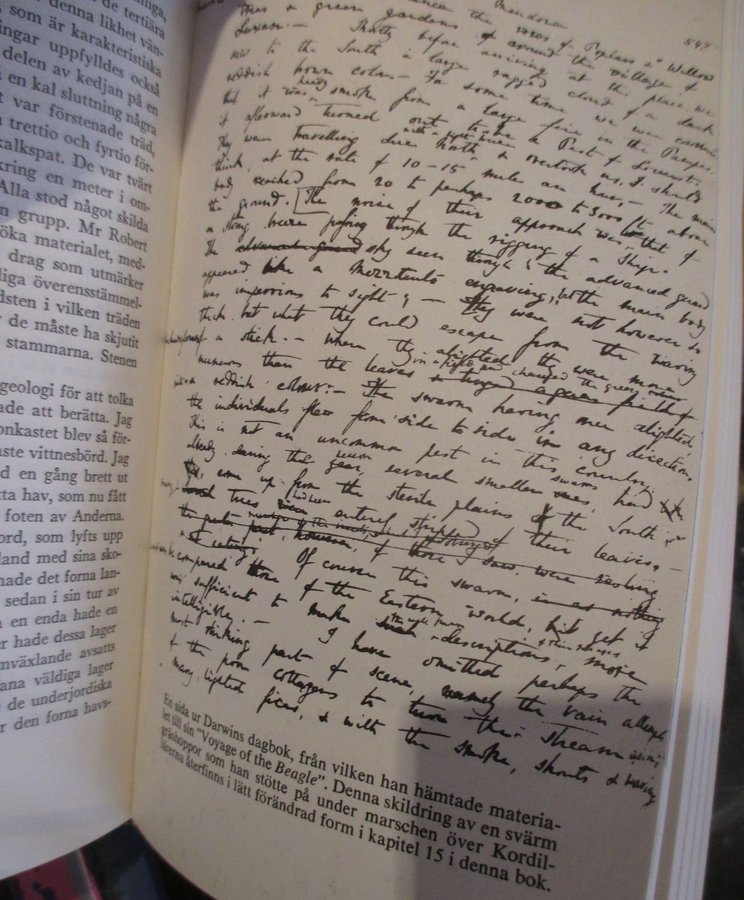 de tertiära
denna likhet vän-
som är karakteristiska
ingar uppfylldes också
delen av kedjan på en
en kal sluttning några
var förstenade träd,
trettio och fyrtio för-
kalkspat. De var tvärt
kring en meter i om-
Alla stod något skilda
n grupp. Mr Robert
öka materialet, med-
drag som utmärker
liga överensstämmel-
dsten i vilken träden
de måste ha skjutit
stammarna. Stenen
geologi för att tolka
ade att berätta. Jag
onkastet blev så för-
aste vittnesbörd. Jag
d en gång brett ut
tta hav, som nu fått
foten av Anderna.
ord, som lyfts upp
land med sina sko-
nade det forna lan-
sedan i sin tur av
en enda hade en
r hade dessa lager
mväxlande avsatts
ana väldiga lager
de underjordiska
r den forna havs-
Mendoza
547
the rows of Poplars & Willows
trees & green gardens around the village of
Luxan. — Shortly before arriving at this place, we
saw to the South a large ragged cloud of a dark
reddish brown color — For some time we were convinced
that it was smoke from a large fire in the Pampas
it afterward turned out to be a Pest of Locusts
They were travelling due North & overtook us, I should
think, at the rate of 10-15 miles an hour. — The main
body reached from 20 to perhaps 2000 to 3000 ft above
the ground. The noise of their approach was that of
a strong breeze passing through the rigging of a ship.
The sky seen through the advanced guard
appeared like a Mezzotinto engraving, but the main body
was impervious to sight; — They were not however so
thick but what they could escape from the waving
of a stick. — When they alighted they were more
numerous than the leaves in field & changed the green
into a reddish colour: — The swarm having once alighted,
the individuals flew from side to side in any direction.
This is not an uncommon pest in this country
already during this season several smaller swarms had
come up from the sterile plains of the South
& trees had been entirely stripped of their leaves. —
Of course this swarm
compared those of the Eastern world, but yet it
was sufficient to make descriptions more
intelligible. — I have omitted perhaps the
most striking part of scene, namely the vain attempts
of the poor cottagers to turn the stream
many lighted fires, & with the smoke, shouts & waving
En sida ur Darwins dagbok, från vilken han hämtade materia-
let till sin "Voyage of the Beagle". Denna skildring av en svärm
gräshoppor som han stötte på under marschen över Kordil-
lärerna återfinns i lätt förändrad form i kapitel 15 i denna bok.